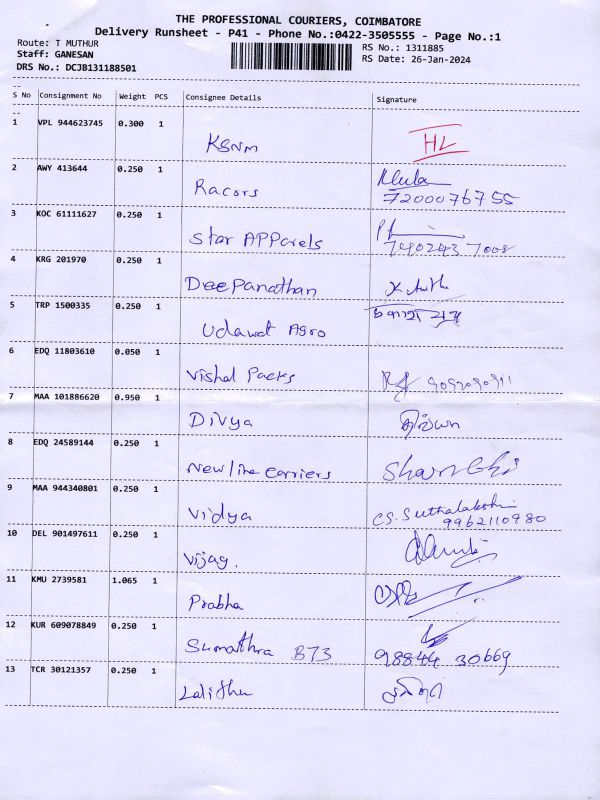 THE PROFESSIONAL COURIERS, COIMBATORE
Delivery Runsheet - P41 - Phone No.:0422-3505555 - Page No.:1
Route: T MUTHUR RS No.: 1311885
Staff: GANESAN RS Date: 26-Jan-2024
DRS No.: DCJB131188501
S No Consignment No Weight PCS Consignee Details Signature
1 VPL 944623745 0.300 1
KSNM HL
2 AWY 413644 0.250 1
Racors
7200076755
3 KOC 61111627 0.250 1
Star APParels
4 KRG 201970 0.250 1
Deepanathan
5 TRP 1500335 0.250 1
Udawat Agro
6 EDQ 11803610 0.050 1
Vishal Packs
7 MAA 101886620 0.950 1
Divya
8 EDQ 24589144 0.250 1
New line carriers
9 MAA 944340801 0.250 1
Vidya
9962110980
10 DEL 901497611 0.250 1
Vijay.
11 KMU 2739581 1.065 1
Prabha
12 KUR 609078849 0.250 1
Sumathra B73 98844 30669
13 TCR 30121357 0.250 1
Lalitha